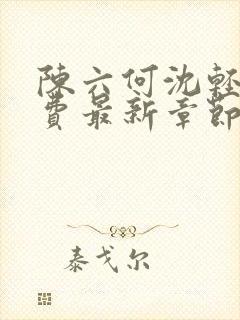 陳六何沈輕
費最新章節
泰戈尔